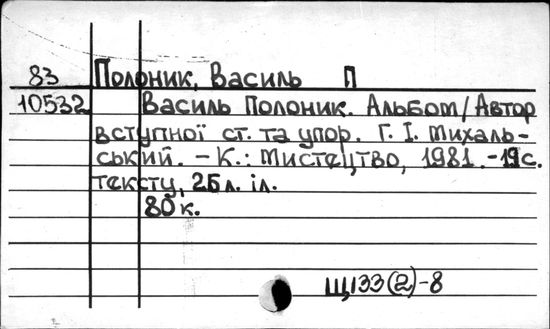 83 Полоник, Василь П
10532 Василь Полоник. Альбом/Автор
вступної ст. та упор. Г. І. Михаль-
ський. – К.: Мистецтво, 1981. – 19 с.
тексту, 25 л. іл.
80 к.
Щ133(2)-8